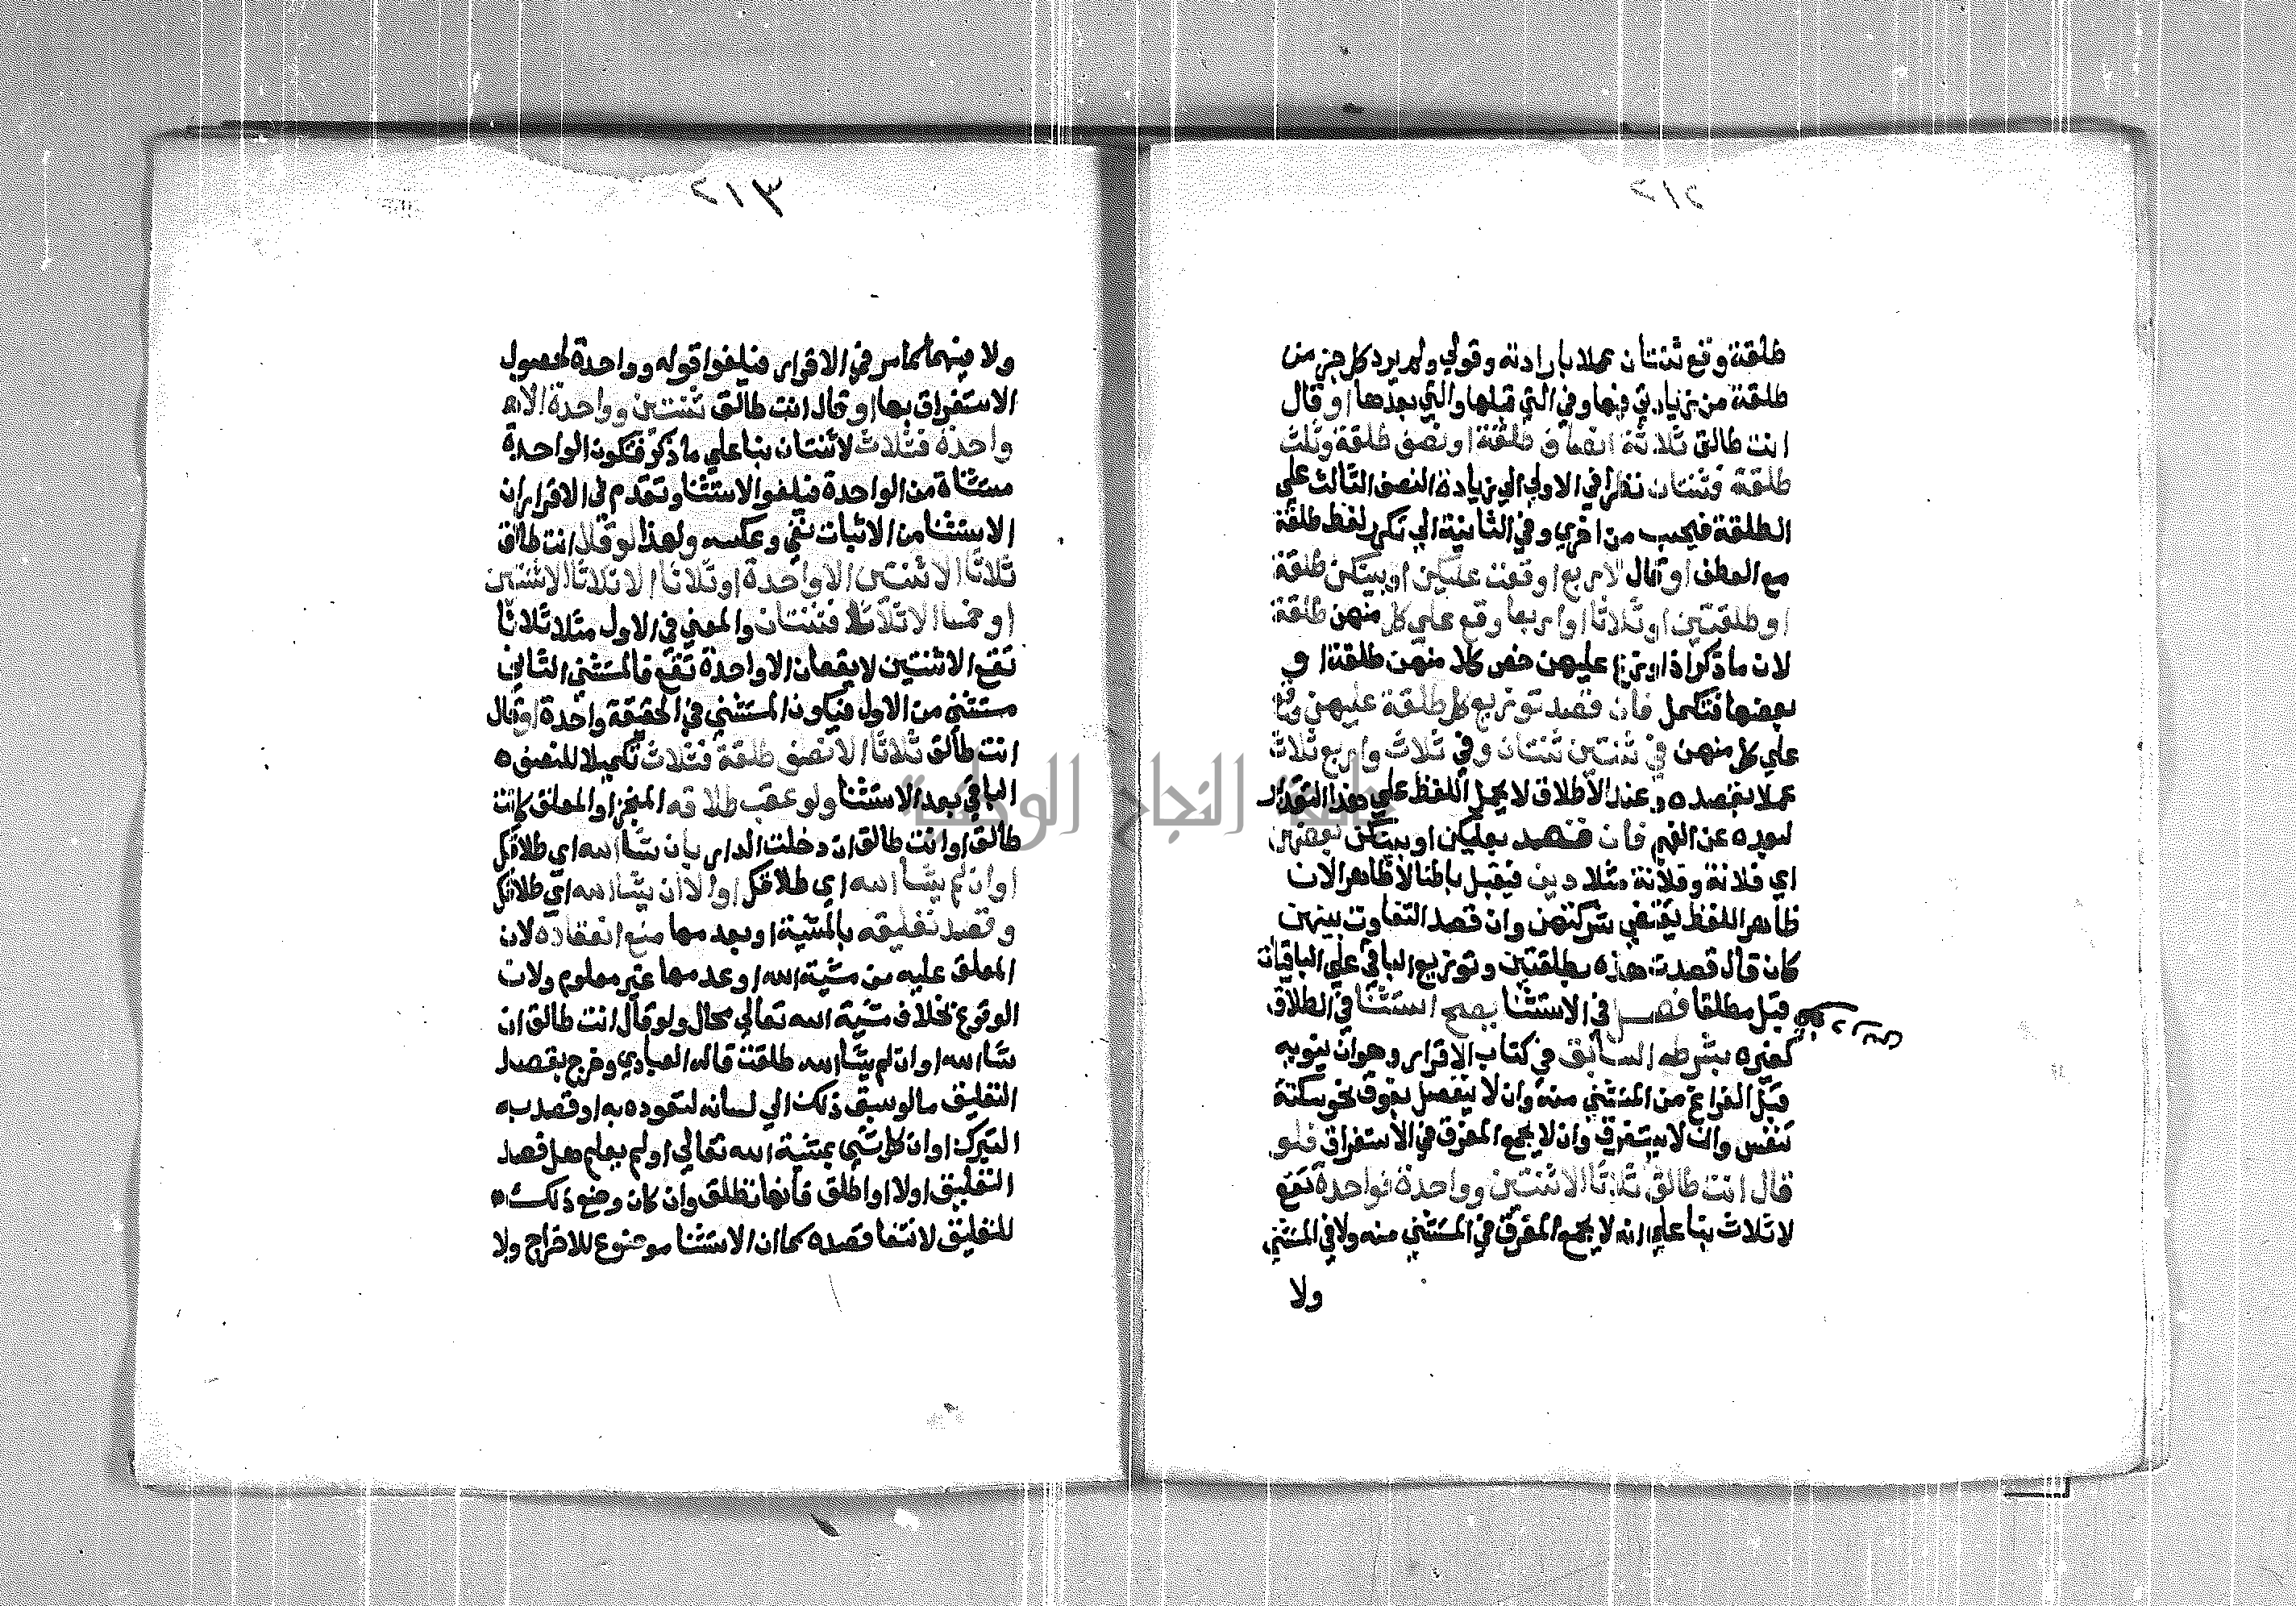 ٢١٢
طلقة وقع ثنتان عملا بارادته وقولي ولم يرد كل جزء من
طلقة من زيادتي فيها وفي التي قبلها والتي بعدها او قال
انت طالق ثلاثة انصاف طلقة او نصف طلقة وثلث
طلقة فثنتان نظرا في الاولي الي زيادة النصف الثالث علي
الطلقة فيحسب من اخري وفي الثانية الي تكرر لفظ طلقة
مع العطف او قال لاربع اوقعت عليكن او بينكن طلقة
او طلقتين او ثلاثا او اربعا وقع علي كل منهن طلقة
لان ما ذكر اذا وزع عليهن خص كلا منهن طلقة او
بعضها فتكمل فان قصد توزيع كل طلقة عليهن وقع
علي كل منهن في ثنتين ثنتان وفي ثلاث واربع ثلاث
عملا بقصده وعند الاطلاق لا يحمل اللفظ علي هذا التقدير
لبعده عن الفهم فان قصد بعليكن او بينكن بعضهن
اي فلانة وفلانة مثلا دين فيقبل باطنا لا ظاهرا لان
ظاهر اللفظ يقتضي شركتهن وان قصد التفاوت بينهن
كان قال قصدت هذه بطلقتين وتوزيع الباقي علي الباقيات
قبل مطلقا فصل في الاستثنا يصح استثنا في الطلاق
كغيره بشرطه السابق في كتاب الاقرار وهو ان ينويه
قبل الفراغ من المستثني منه وان لا ينفصل بفوق نحو سكتة
تنفس وان لا يستغرق وان لا يجمع المفرق في الاستغراق فلو
قال انت طالق ثلاثا الا ثنتين وواحدة فواحدة تقع
لا ثلاث بنا علي انه لا يجمع المفرق في المستثني منه ولا في المستثني
ولا
٢١٣
ولا فيهما كما مر في الاقرار فيلغوا قوله وواحدة لحصول
الاستغراق بها او قال انت طالق ثنتين وواحدة الا
واحدة فثلاث لا ثنتان بنا علي ما ذكر فتكون الواحدة
مستثناة من الواحدة فيلغوا الاستثنا وتقدم في الاقرار ان
الاستثنا من الاثبات نفي وعكسه ولهذا لو قال انت طالق
ثلاثا الا ثنتين الا واحدة او ثلاثا الا ثلاثا الا ثنتين
او خمسا الا ثلاثا فثنتان والمعني في الاول مثلا ثلاثا
تقع الا ثنتين لا يقعان الا واحدة تقع فالمستثني الثاني
مستثني من الاول فيكون المستثني في الحقيقة واحدة او قال
انت طالق ثلاثا الا نصف طلقة فثلاث تكميلا للنصف ه
الباقي بعد الاستثنا ولو عقب طلاقه المنجز او المعلق كانت
طالق او انت طالق ان دخلت الدار بان شا الله اي طلاقك
او ان لم يشا الله اي طلاقك او الا ان يشا الله اي طلاقك
وقصد تعليقه بالمشية او بعدمها منع انعقاده لان
المعلق عليه من مشية الله او عدمها غير معلوم ولان
الوقوع بخلاف مشية الله تعالي محال ولو قال انت طالق ان
شا الله او ان لم يشا الله طلقت قاله العبادي وخرج بقصد
التعليق ما لو سبق ذلك الي لسانه لتعوده به او قصد به
التبرك او ان كل شي بمشية الله تعالي او لم يعلم هل قصد
التعليق اولا او اطلق فانها تطلق وان كان وضع ذلك ه
للتعليق لانتفا قصده كما ان الاستثنا موضوع للاخراج ولا